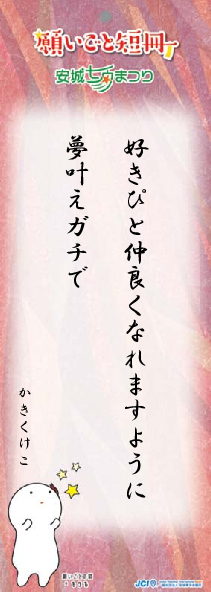 願いごと短冊
安城七夕まつり
好きぴと仲良くなれますように
夢叶えガチで
かきくけこ
願いごと短冊
JCI